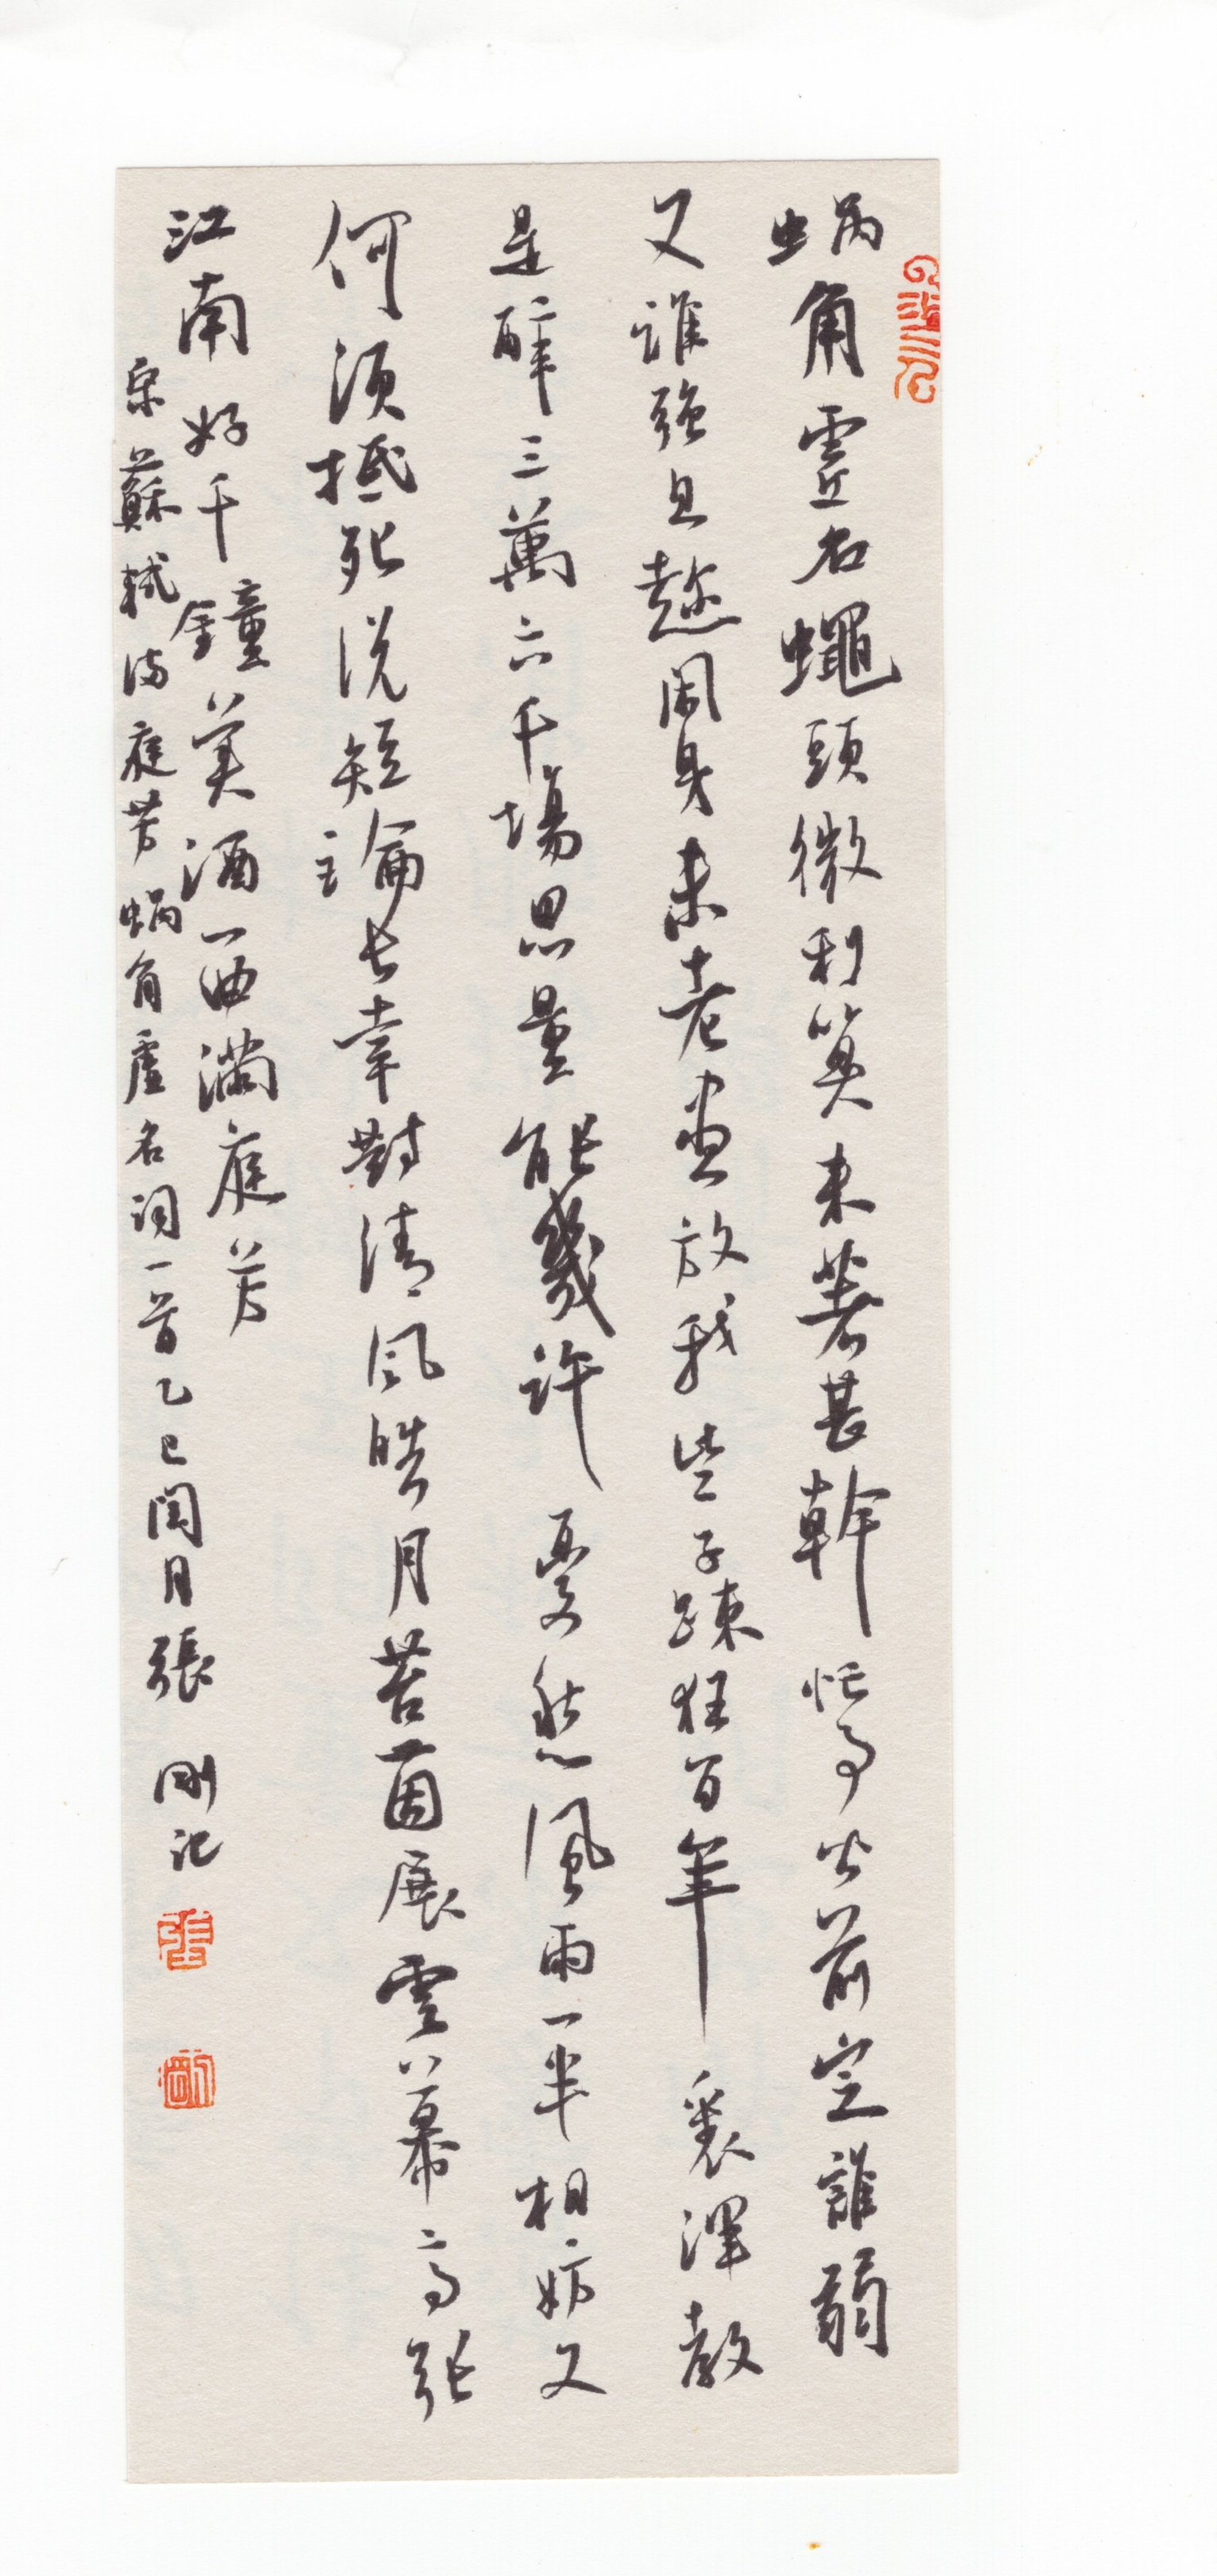 蝸角虛名蠅頭微利算來著甚幹忙事皆前定誰弱
又誰強且趁閑身未老盡放我些子疎狂百年裏渾教
是醉三萬六千場思量能幾許憂愁風雨一半相妨又
何須抵死說短論長幸對清風皓月苔茵展雲幕高張
江南好千鐘美酒一曲滿庭芳
宋蘇軾滿庭芳蝸角虛名詞一首乙巳閏月張剛記